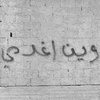 وين اغدي